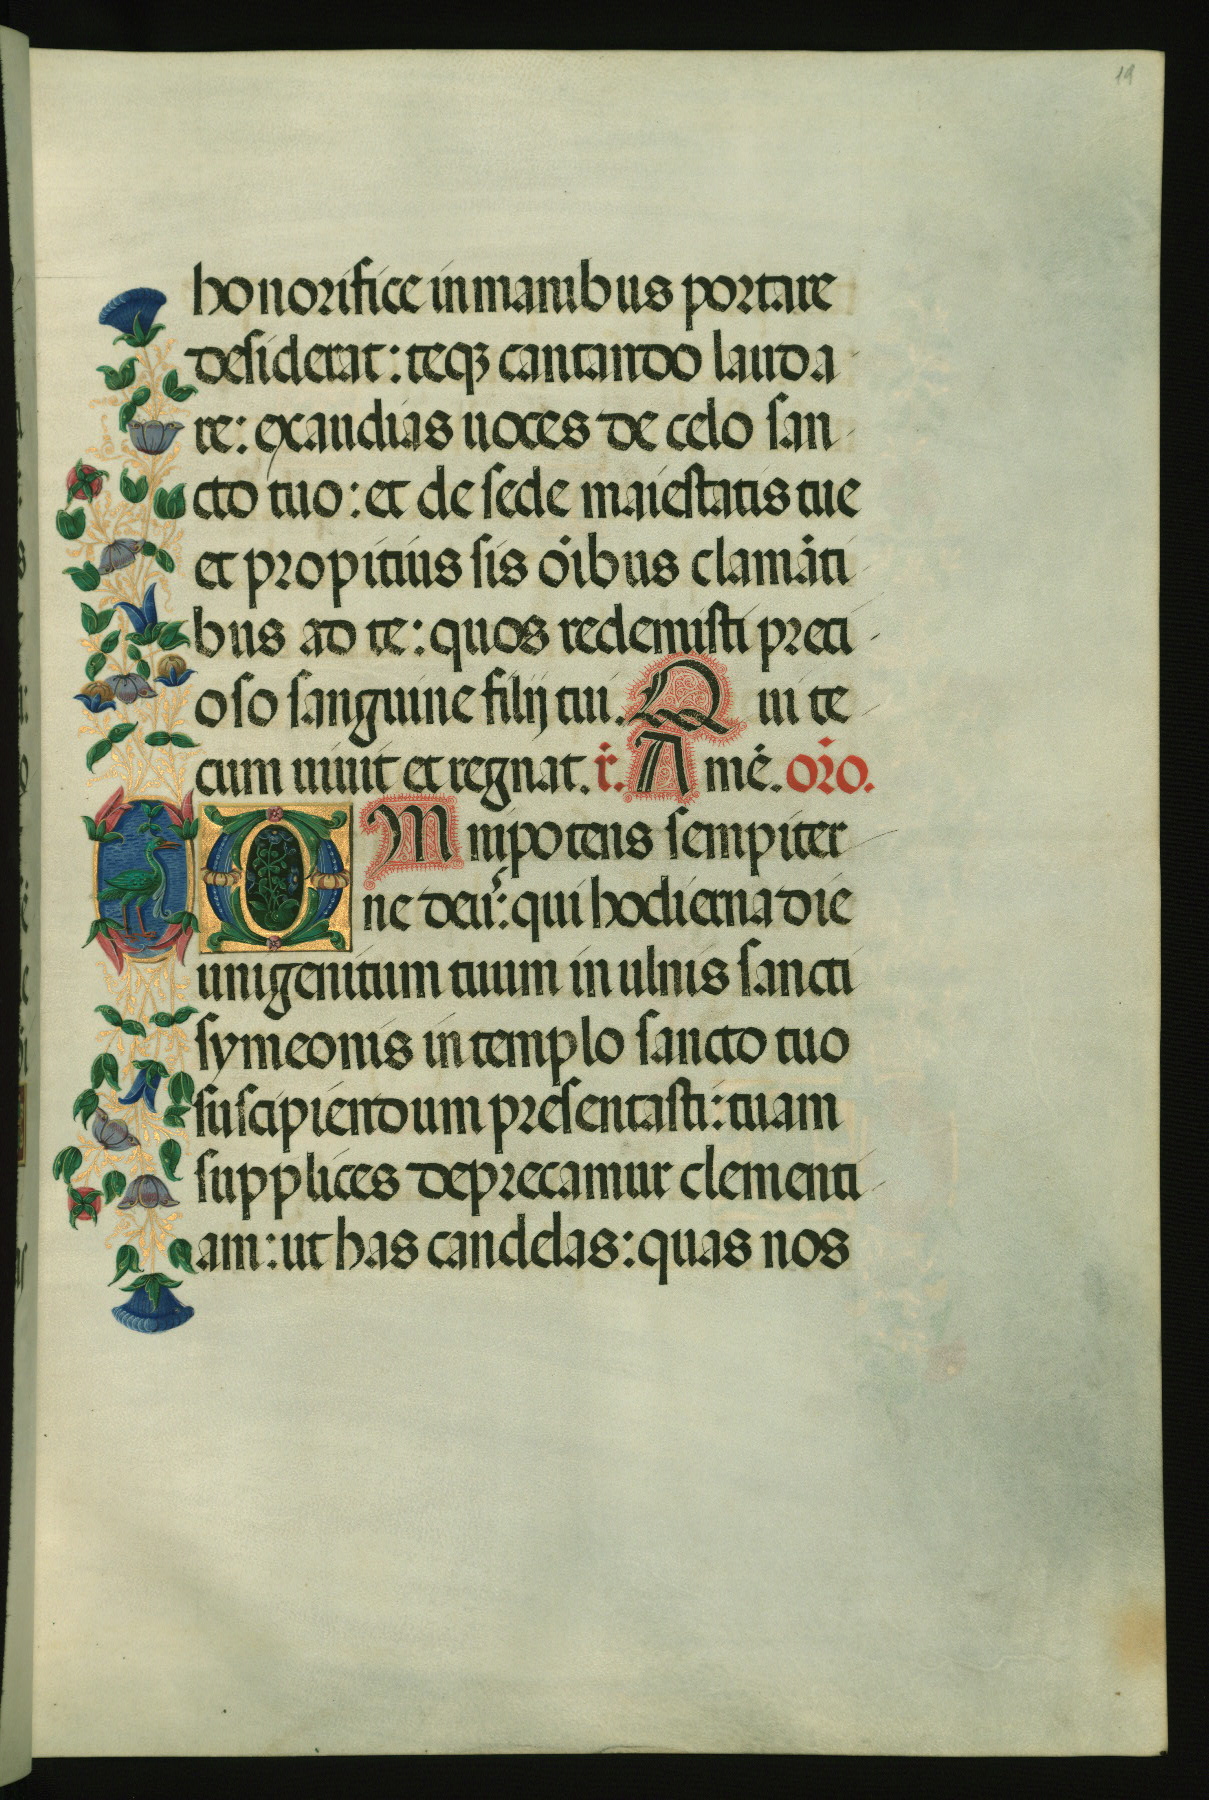 19
honorifice in manibus portare
desiderat: teqꝫ cantando lauda
re: exaudias uoces de celo san
cto tuo: et de sede maiestatis tue
et propitius sis oībus clamāti
bus ad te: quos redemisti preci
oso sanguine filij tui. Qui te
cum uiuit et regnat. r̄. Amē. or̄o.
OMnipotens sempiter
ne deus: qui hodierna die
unigenitum tuum in ulnis sancti
symeonis in templo sancto tuo
suscipiendum presentasti: tuam
supplices deprecamur clementi
am: ut has candelas: quas nos